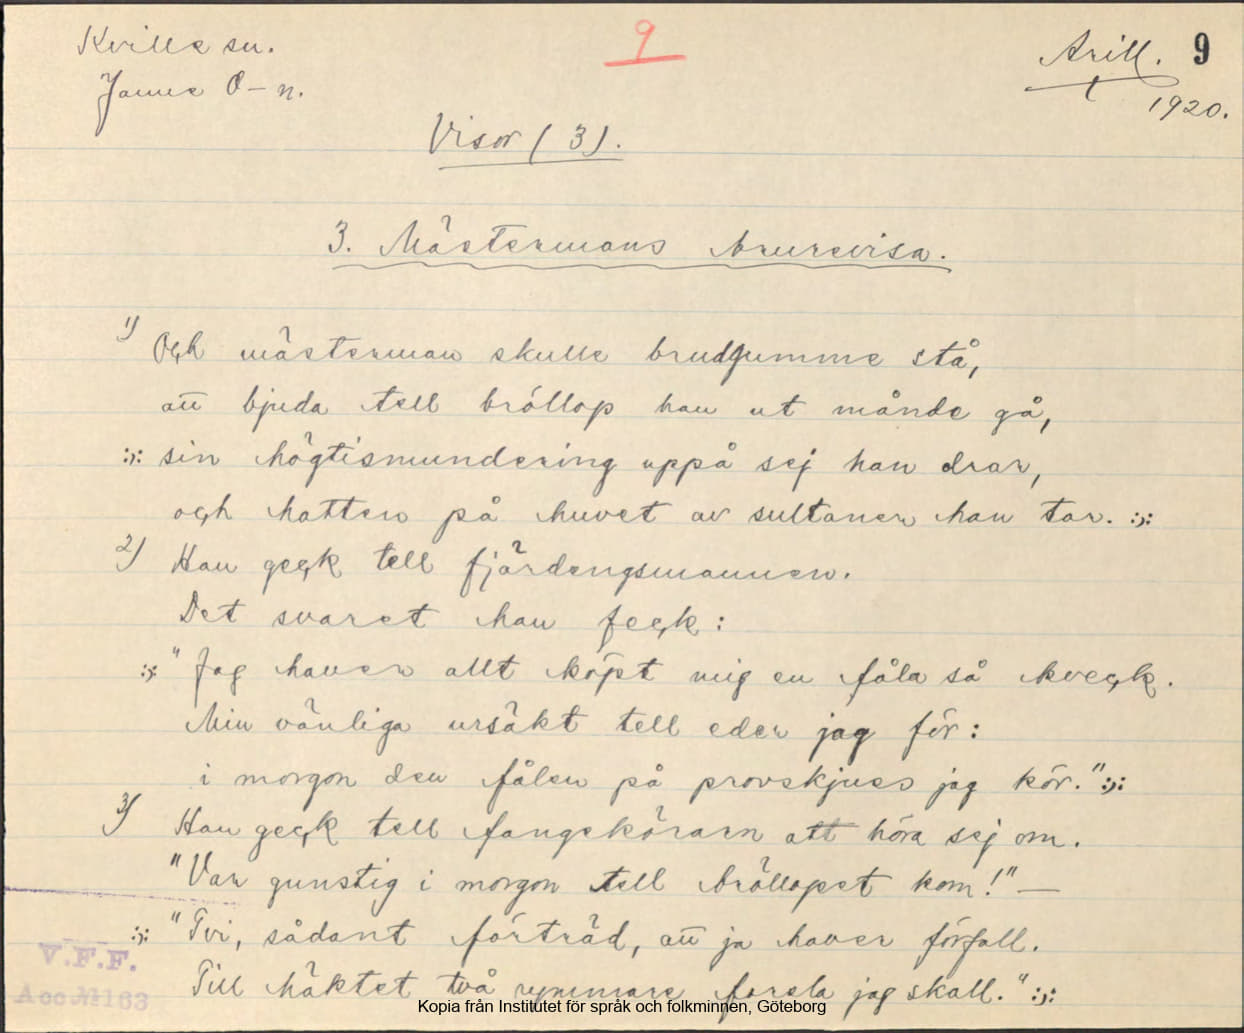 Kville sn.
Janne O-n.
9
Arill. 9
1920.
Visor (3).
3. Mästermans brurevisa.
1) Och mästerman skulle brudgumme stå,
att bjuda tell bröllop han ut månde gå,
:,: sin högtismundering uppå sej han drar,
och hatten på huvet av sultanen han tar. :,:
2) Han geck tell fjärdengsmannen.
Det svaret han feck:
:,: "Jag haver allt köpt mig en fåla så kveck.
Min vänliga ursäkt tell eder jag för:
i morgon den fålen på provskjuss jag kör." :,:
3) Han geck tell fangeköraren att höra sej om.
"Var gunstig i morgon tell bröllopet kom!" —
:,: "Tvi, sådant förträd, att ja haver förfall.
Till häktet två rymmare forsla jag skall." :,:
V.F.F.
Acc. № 163
Kopia från Institutet för språk och folkminnen, Göteborg